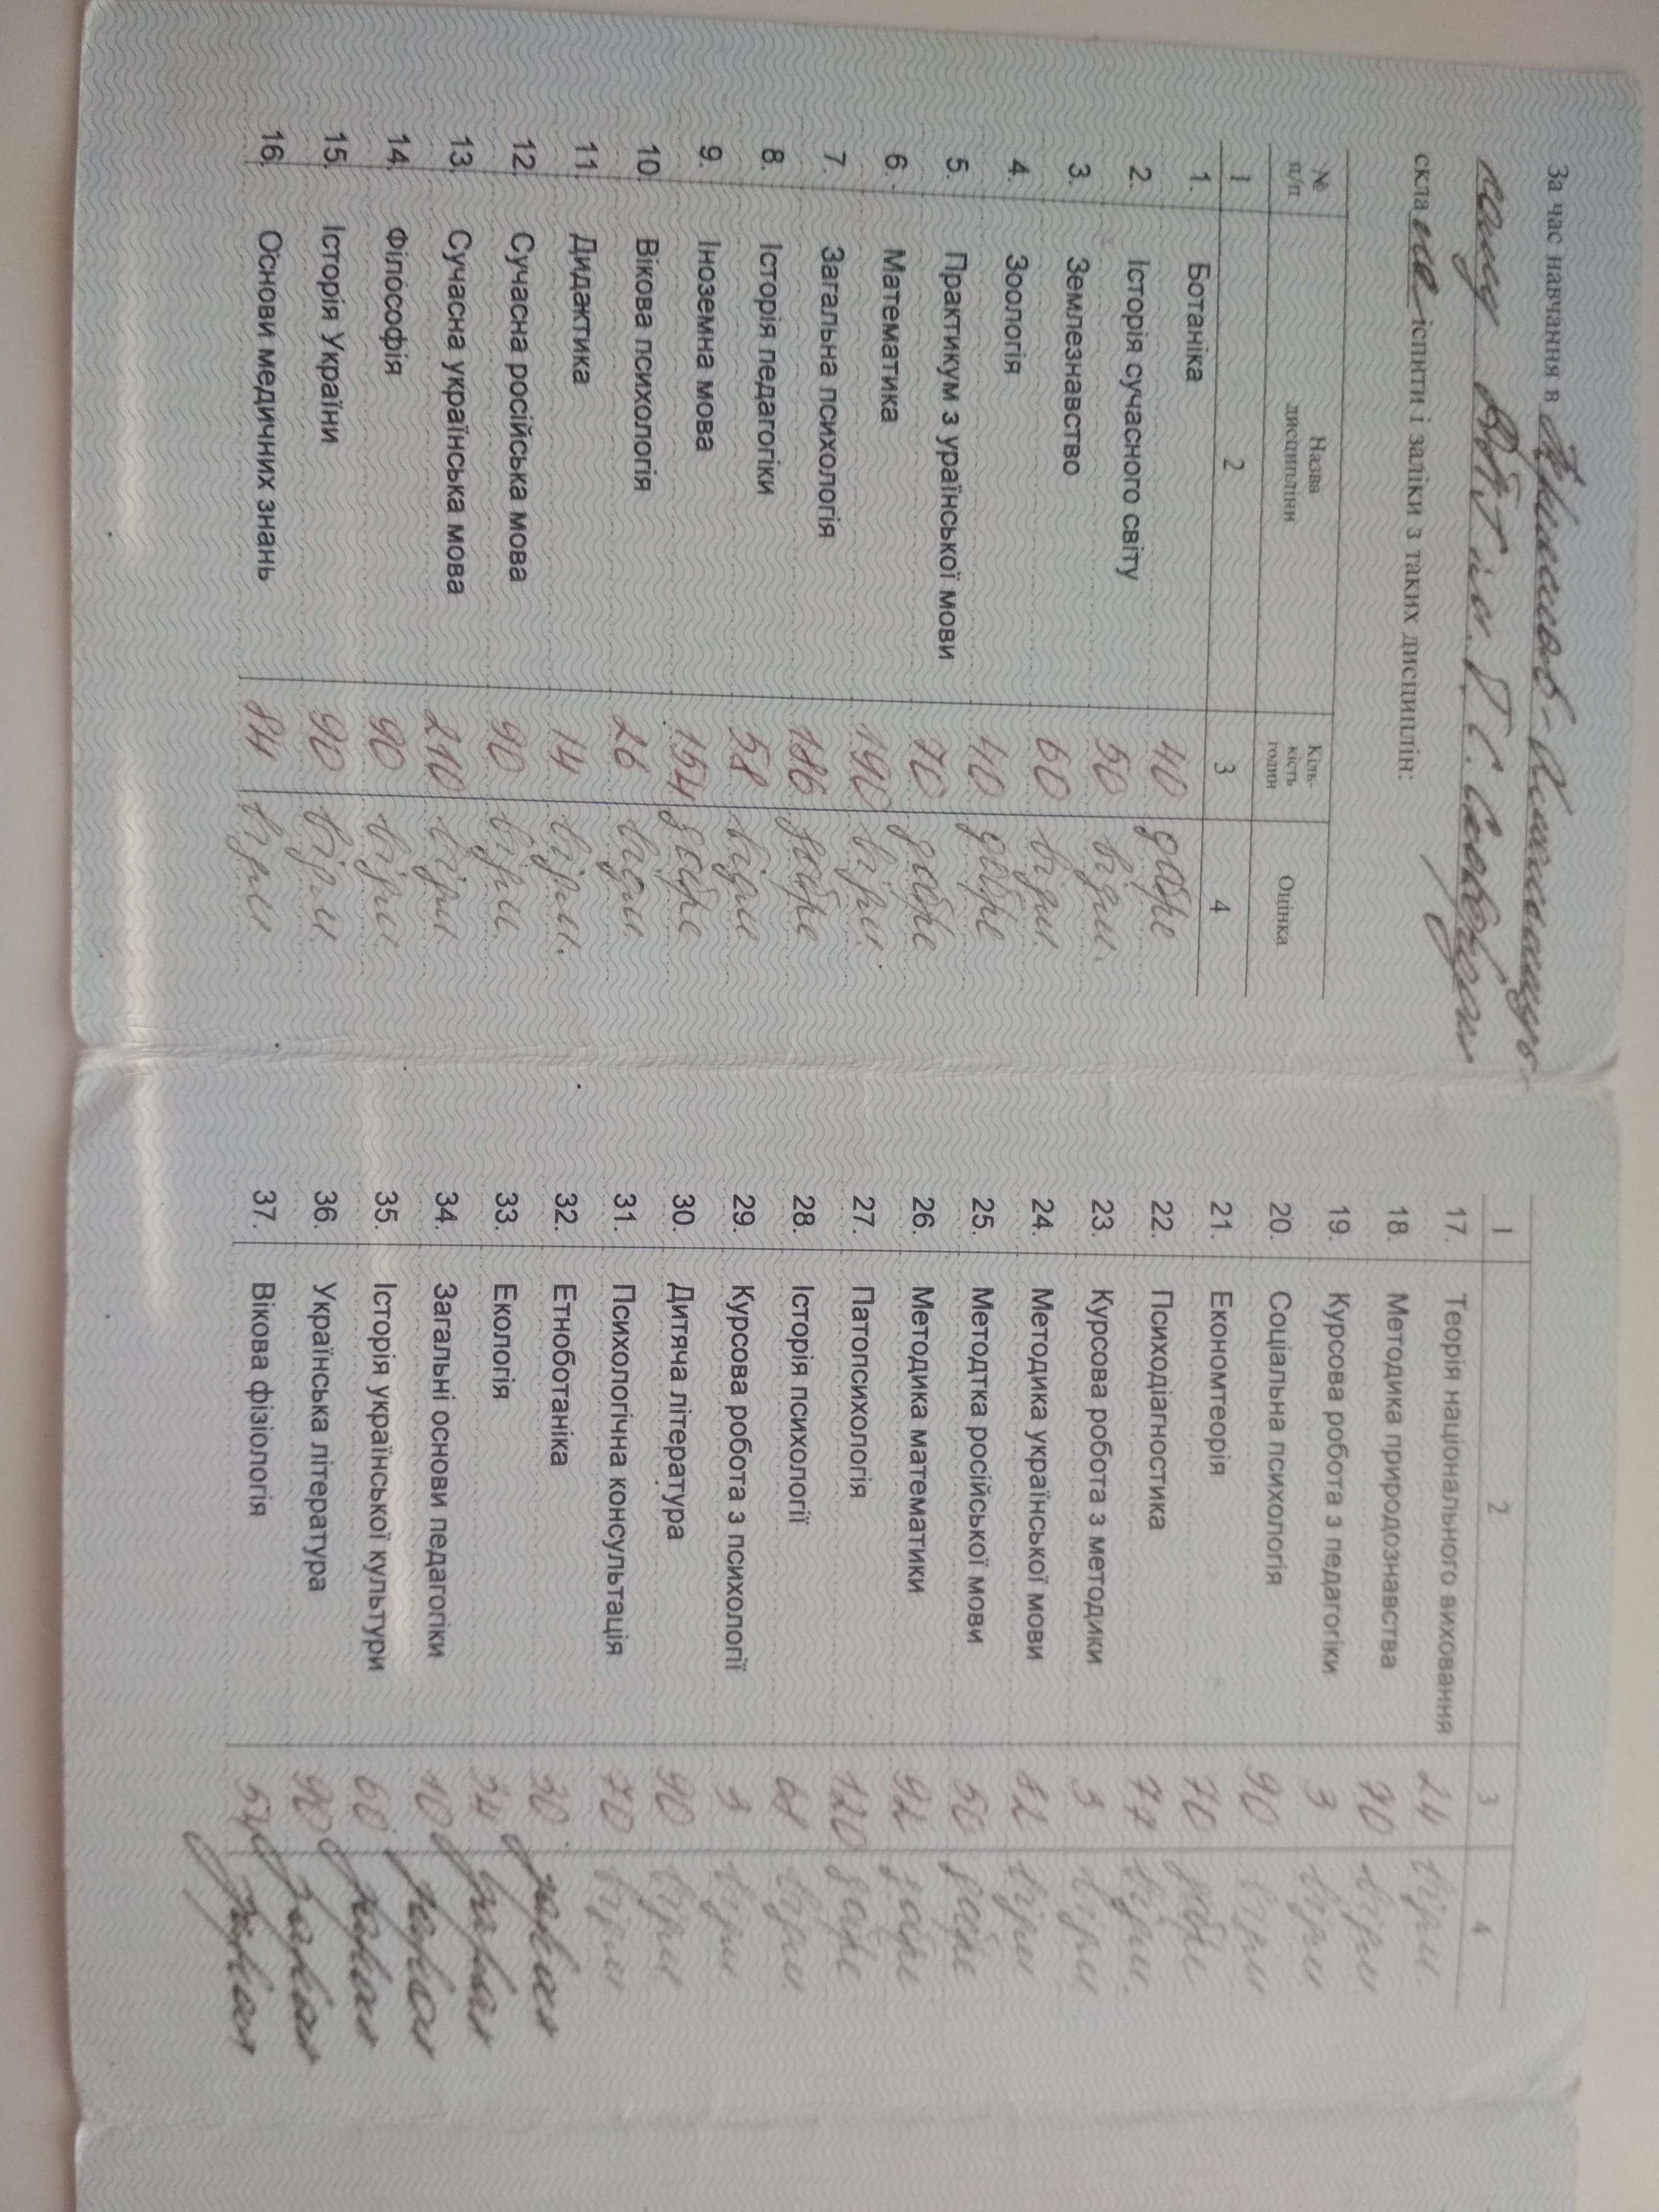 За час навчання в Переяслав-Хмельницько-
му ДПІ ім. Г.С. Сковороди
склала іспити і заліки з таких дисциплін:
№ п/п Назва дисципліни Кіль-кість годин Оцінка
1 2 3 4
1. Ботаніка 40 добре
2. Історія сучасного світу 50 відм.
3. Землезнавство 60 відм.
4. Зоологія 40 добре
5. Практикум з ураїнської мови 70 добре
6. Математика 190 відм.
7. Загальна психологія 186 добре
8. Історія педагогіки 58 відм
9. Іноземна мова 154 добре
10. Вікова психологія 26 відм
11. Дидактика 14 відм.
12. Сучасна російська мова 90 відм.
13. Сучасна українська мова 210 відм.
14. Філософія 90 відм.
15. Історія України 90 відм.
16. Основи медичних знань 84 відм
1 2 3 4
17. Теорія національного виховання 24 відм.
18. Методика природознавства 70 відм
19. Курсова робота з педагогіки 3 відм
20. Соціальна психологія 90 відм
21. Економтеорія 70 добре
22. Психодіагностика 77 відм.
23. Курсова робота з методики 3 відм
24. Методика української мови 82 відм
25. Методтка російської мови 50 добре
26. Методика математики 92 добре
27. Патопсихологія 120 добре
28. Історія психології 68 відм.
29. Курсова робота з психології 3 відм.
30. Дитяча література 90 відм.
31. Психологічна консультація 70 відм
32. Етноботаніка 30
33. Екологія 34
34. Загальні основи педагогіки 10
35. Історія української культури 60
36. Українська література 90
37. Вікова фізіологія 54